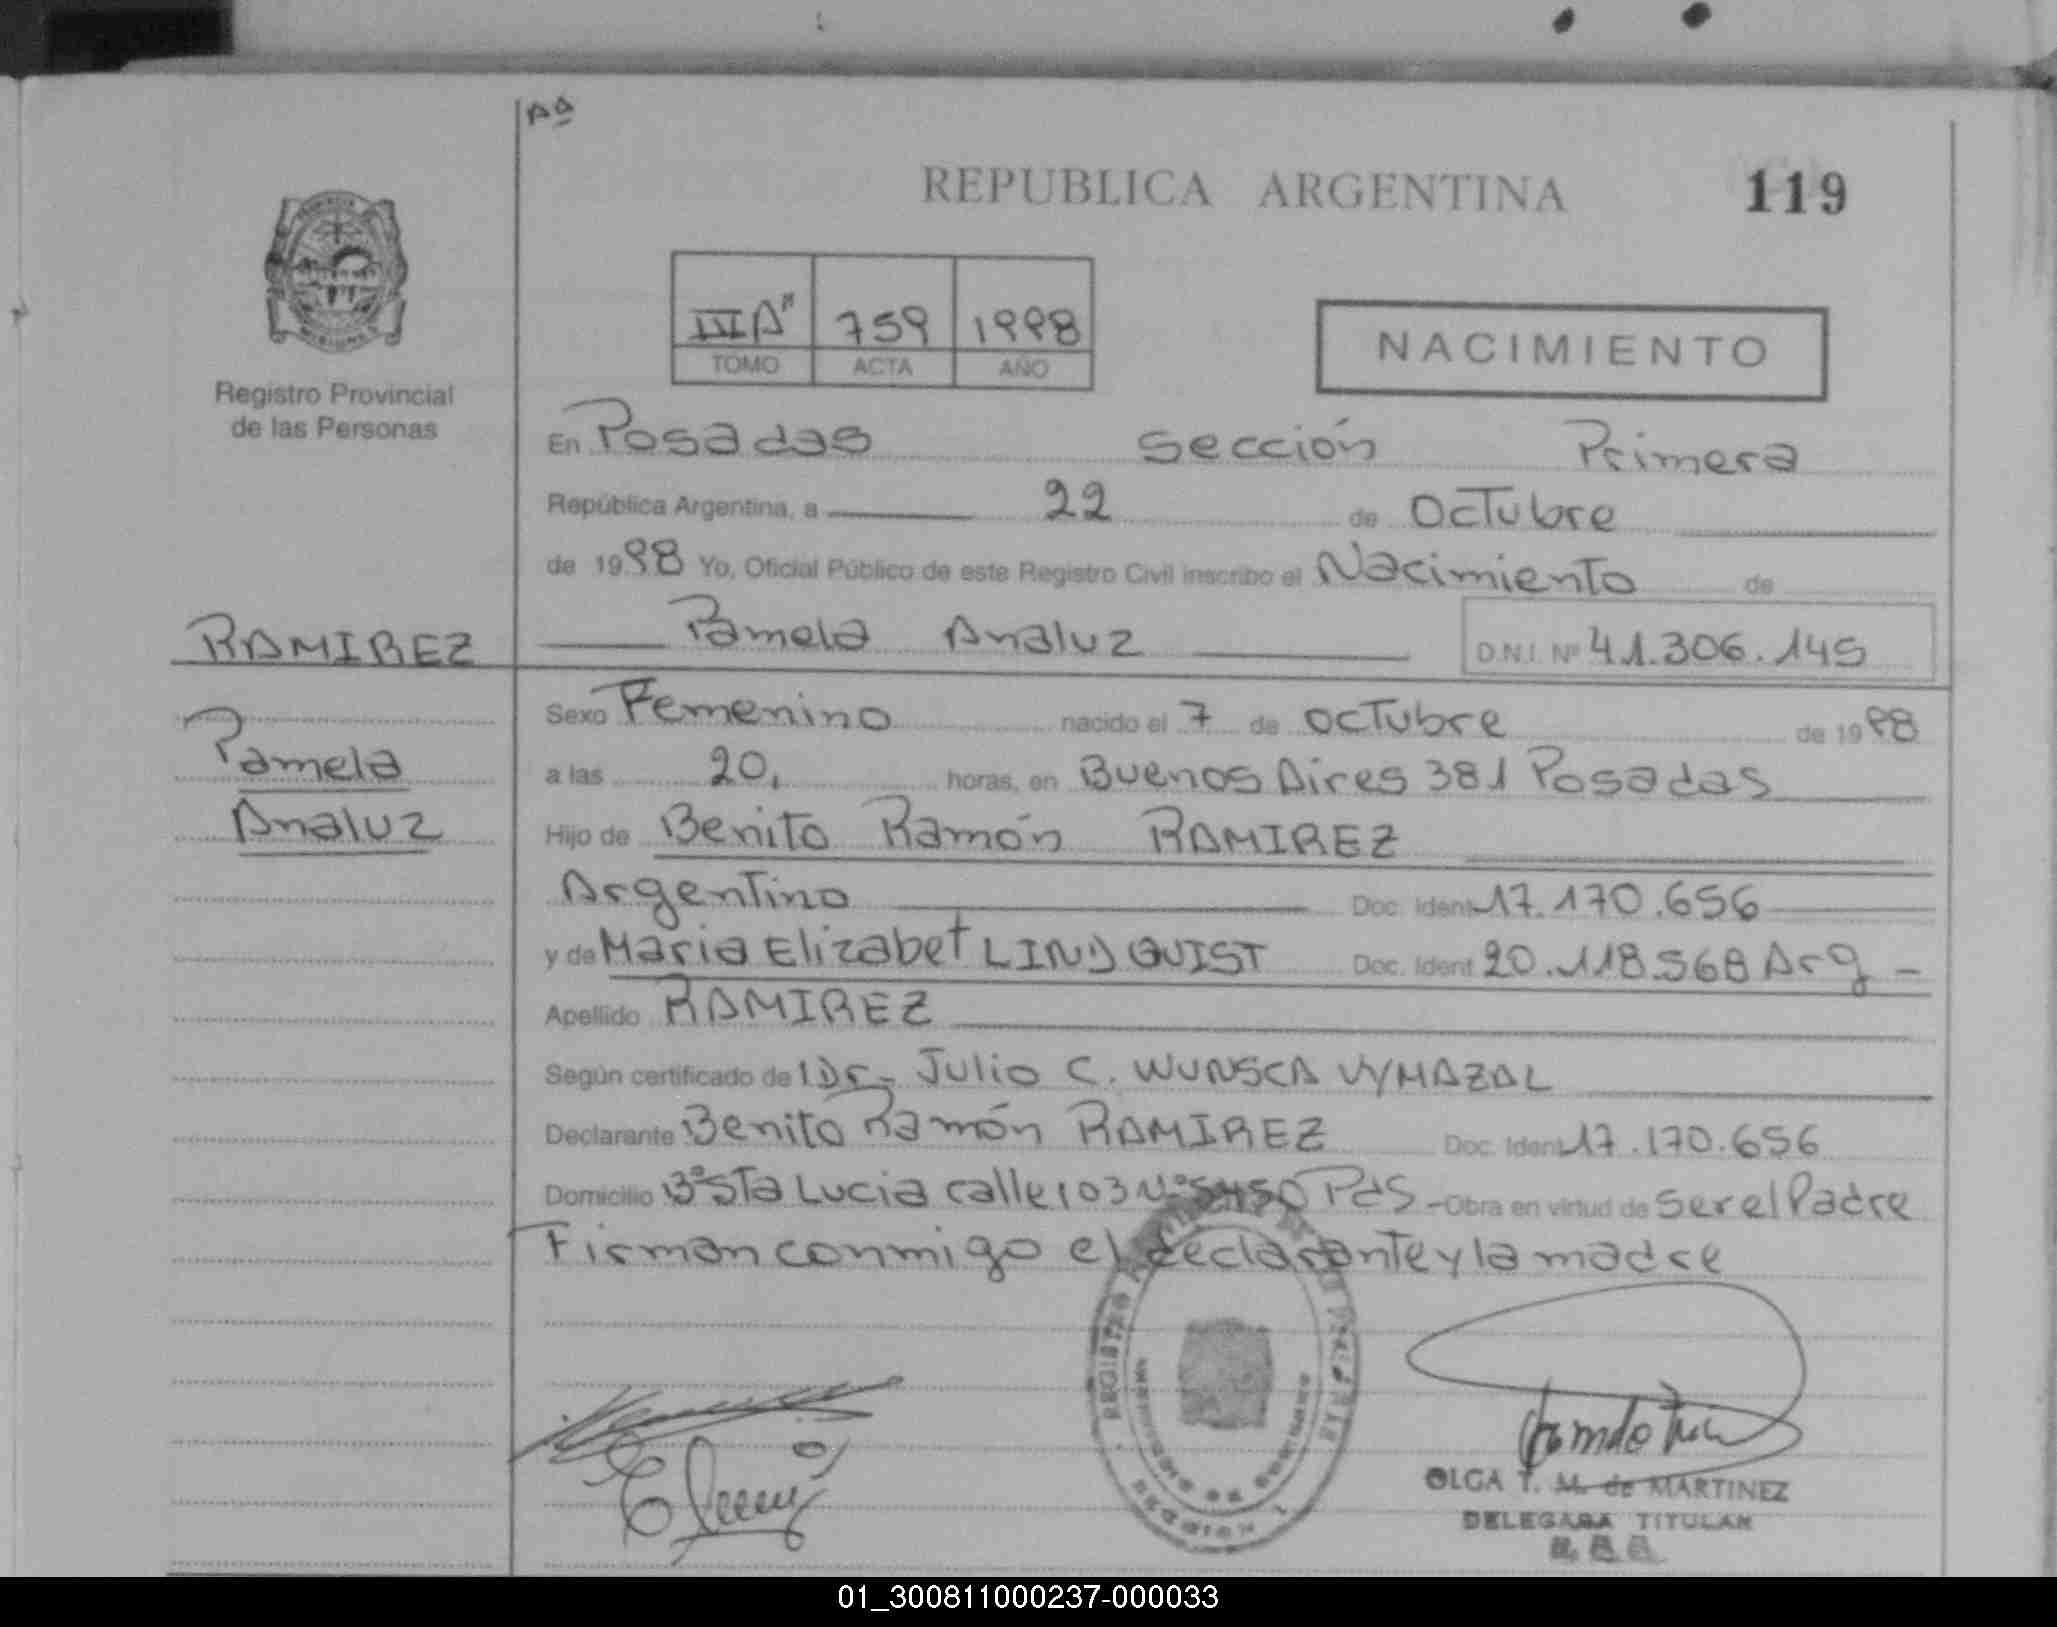 Aº
REPUBLICA ARGENTINA
119
Registro Provincial
de las Personas
IIIA" 759 1998
TOMO ACTA AÑO
NACIMIENTO
En Posadas sección Primera
República Argentina, a 22 de Octubre
de 1998 Yo, Oficial Público de este Registro Civil inscribo el Nacimiento de
Pamela Analuz D.N.I. Nº 41.306.145
RAMIREZ
Pamela
Analuz
Sexo Femenino nacido el 7 de octubre de 1998
a las 20, horas, en Buenos Aires 381 Posadas
Hijo de Benito Ramón RAMIREZ
Argentino Doc. Ident 17.170.656
y de Maria Elizabet LINDQUIST Doc. Ident 20.118.568 Arg -
Apellido RAMIREZ
Según certificado de l Dr. Julio C. WUNSCA VYMAZAL
Declarante Benito Ramón RAMIREZ Doc. Ident 17.170.656
Domicilio Bº Sta Lucia calle 103 Nº 5450 PdS - Obra en virtud de ser el Padre
Firman conmigo el declarante y la madre
OLGA T. M. de MARTINEZ
DELEGADA TITULAR
01_300811000237-000033